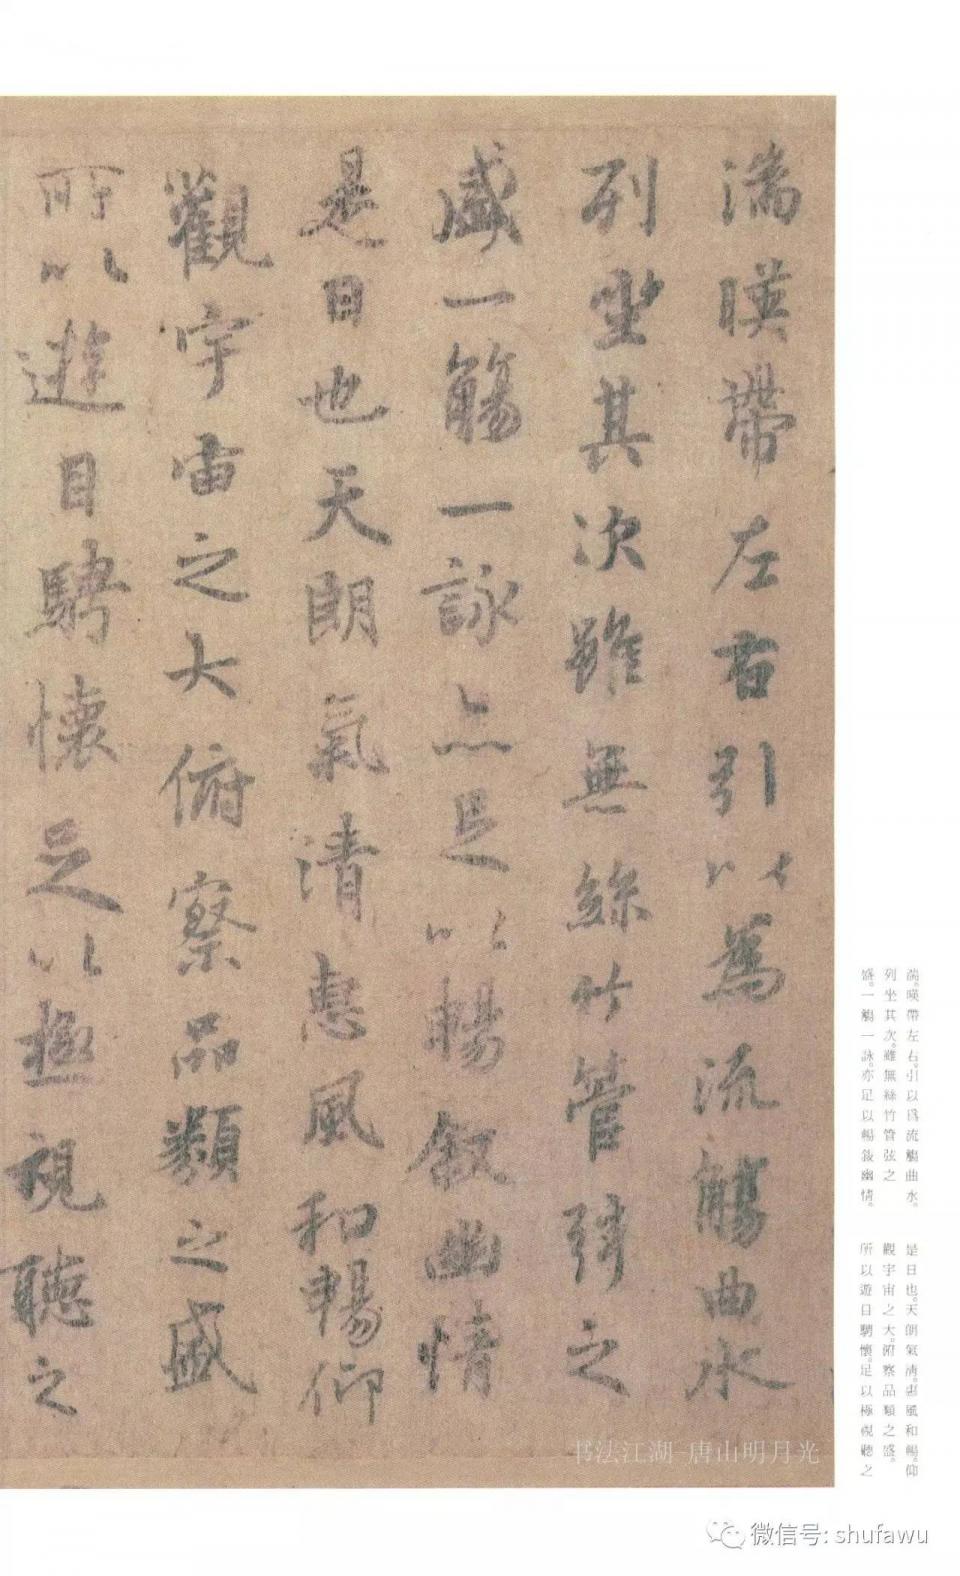 湍暎帶左右引以為流觴曲水
列坐其次雖無絲竹管弦之
盛一觴一詠亦足以暢敘幽情
是日也天朗氣清惠風和暢仰
觀宇宙之大俯察品類之盛
所以遊目騁懷足以極視聽之
湍。暎帶左右。引以爲流觴曲水。
列坐其次。雖無絲竹管弦之
盛。一觴一詠。亦足以暢敍幽情。
是日也。天朗氣清。惠風和暢。仰
觀宇宙之大。俯察品類之盛。
所以遊目騁懷。足以極視聽之
书法江湖-唐山明月光
微信号: shufawu